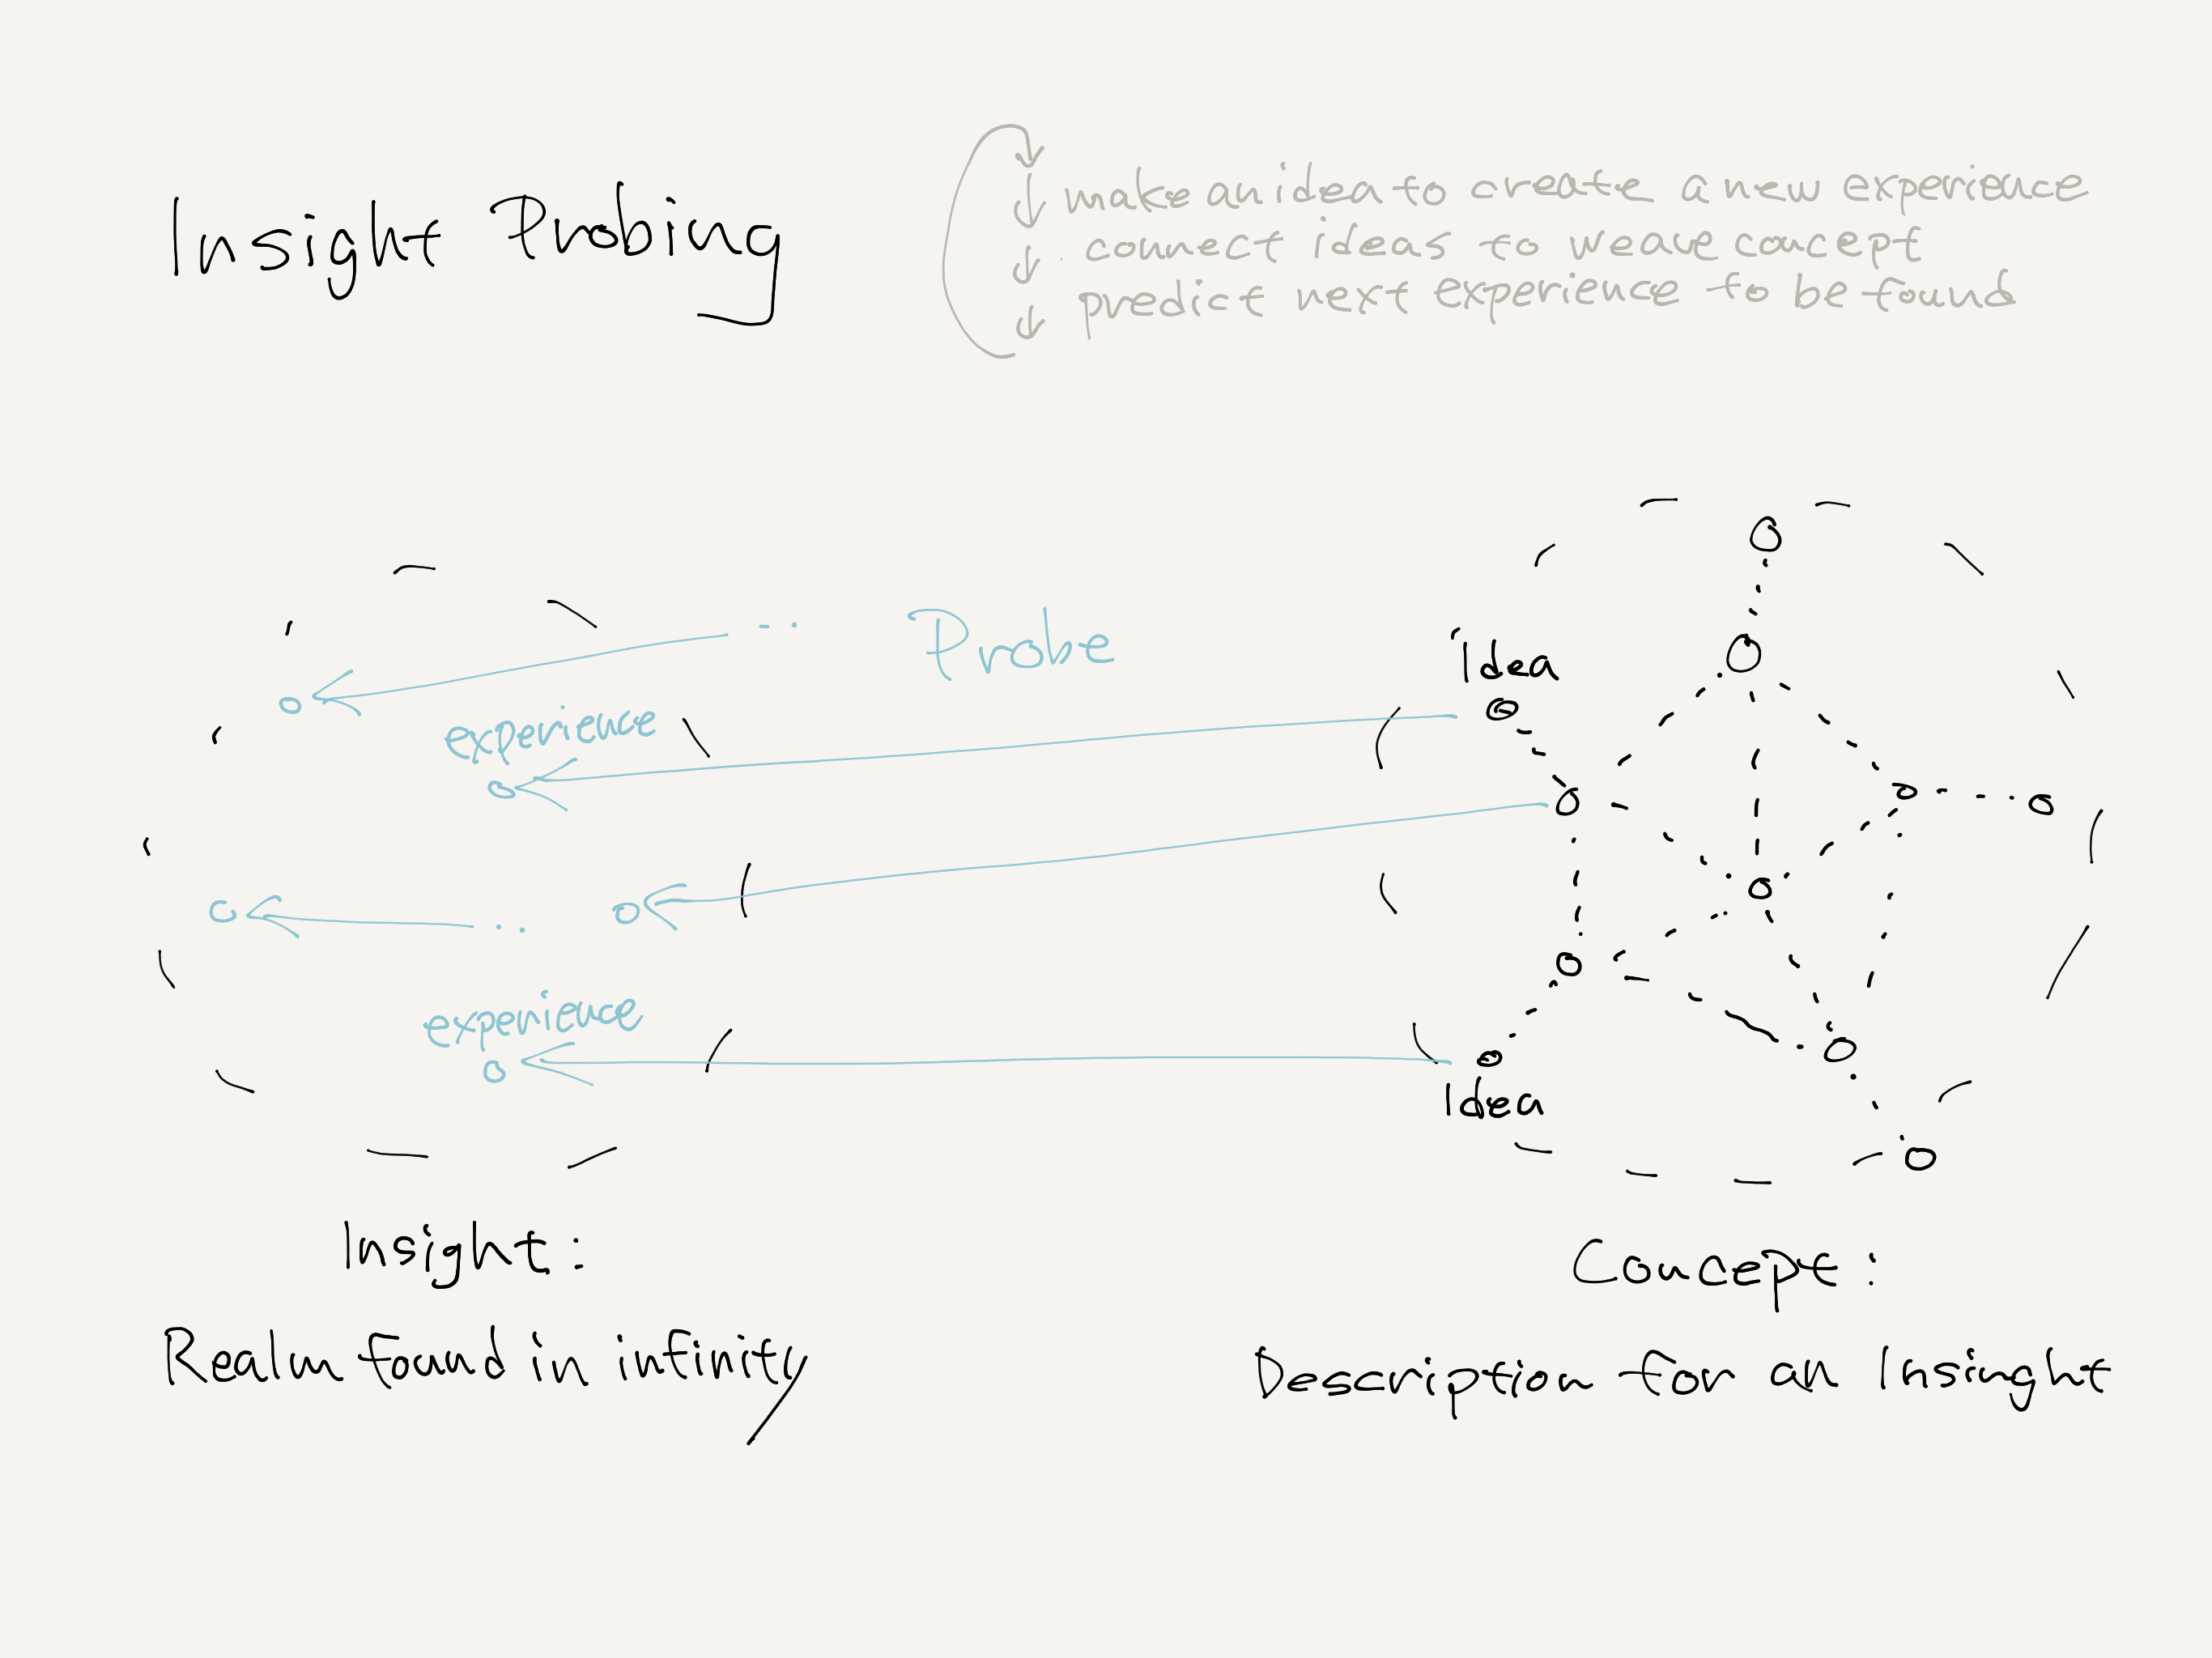 Insight Probing
make an idea to create a new experience
connect ideas to weave concept
predict next experience to be found
Probe
Idea
experience
experience
Idea
Insight:
Realm found in infinity
Concept:
Description for an Insignht